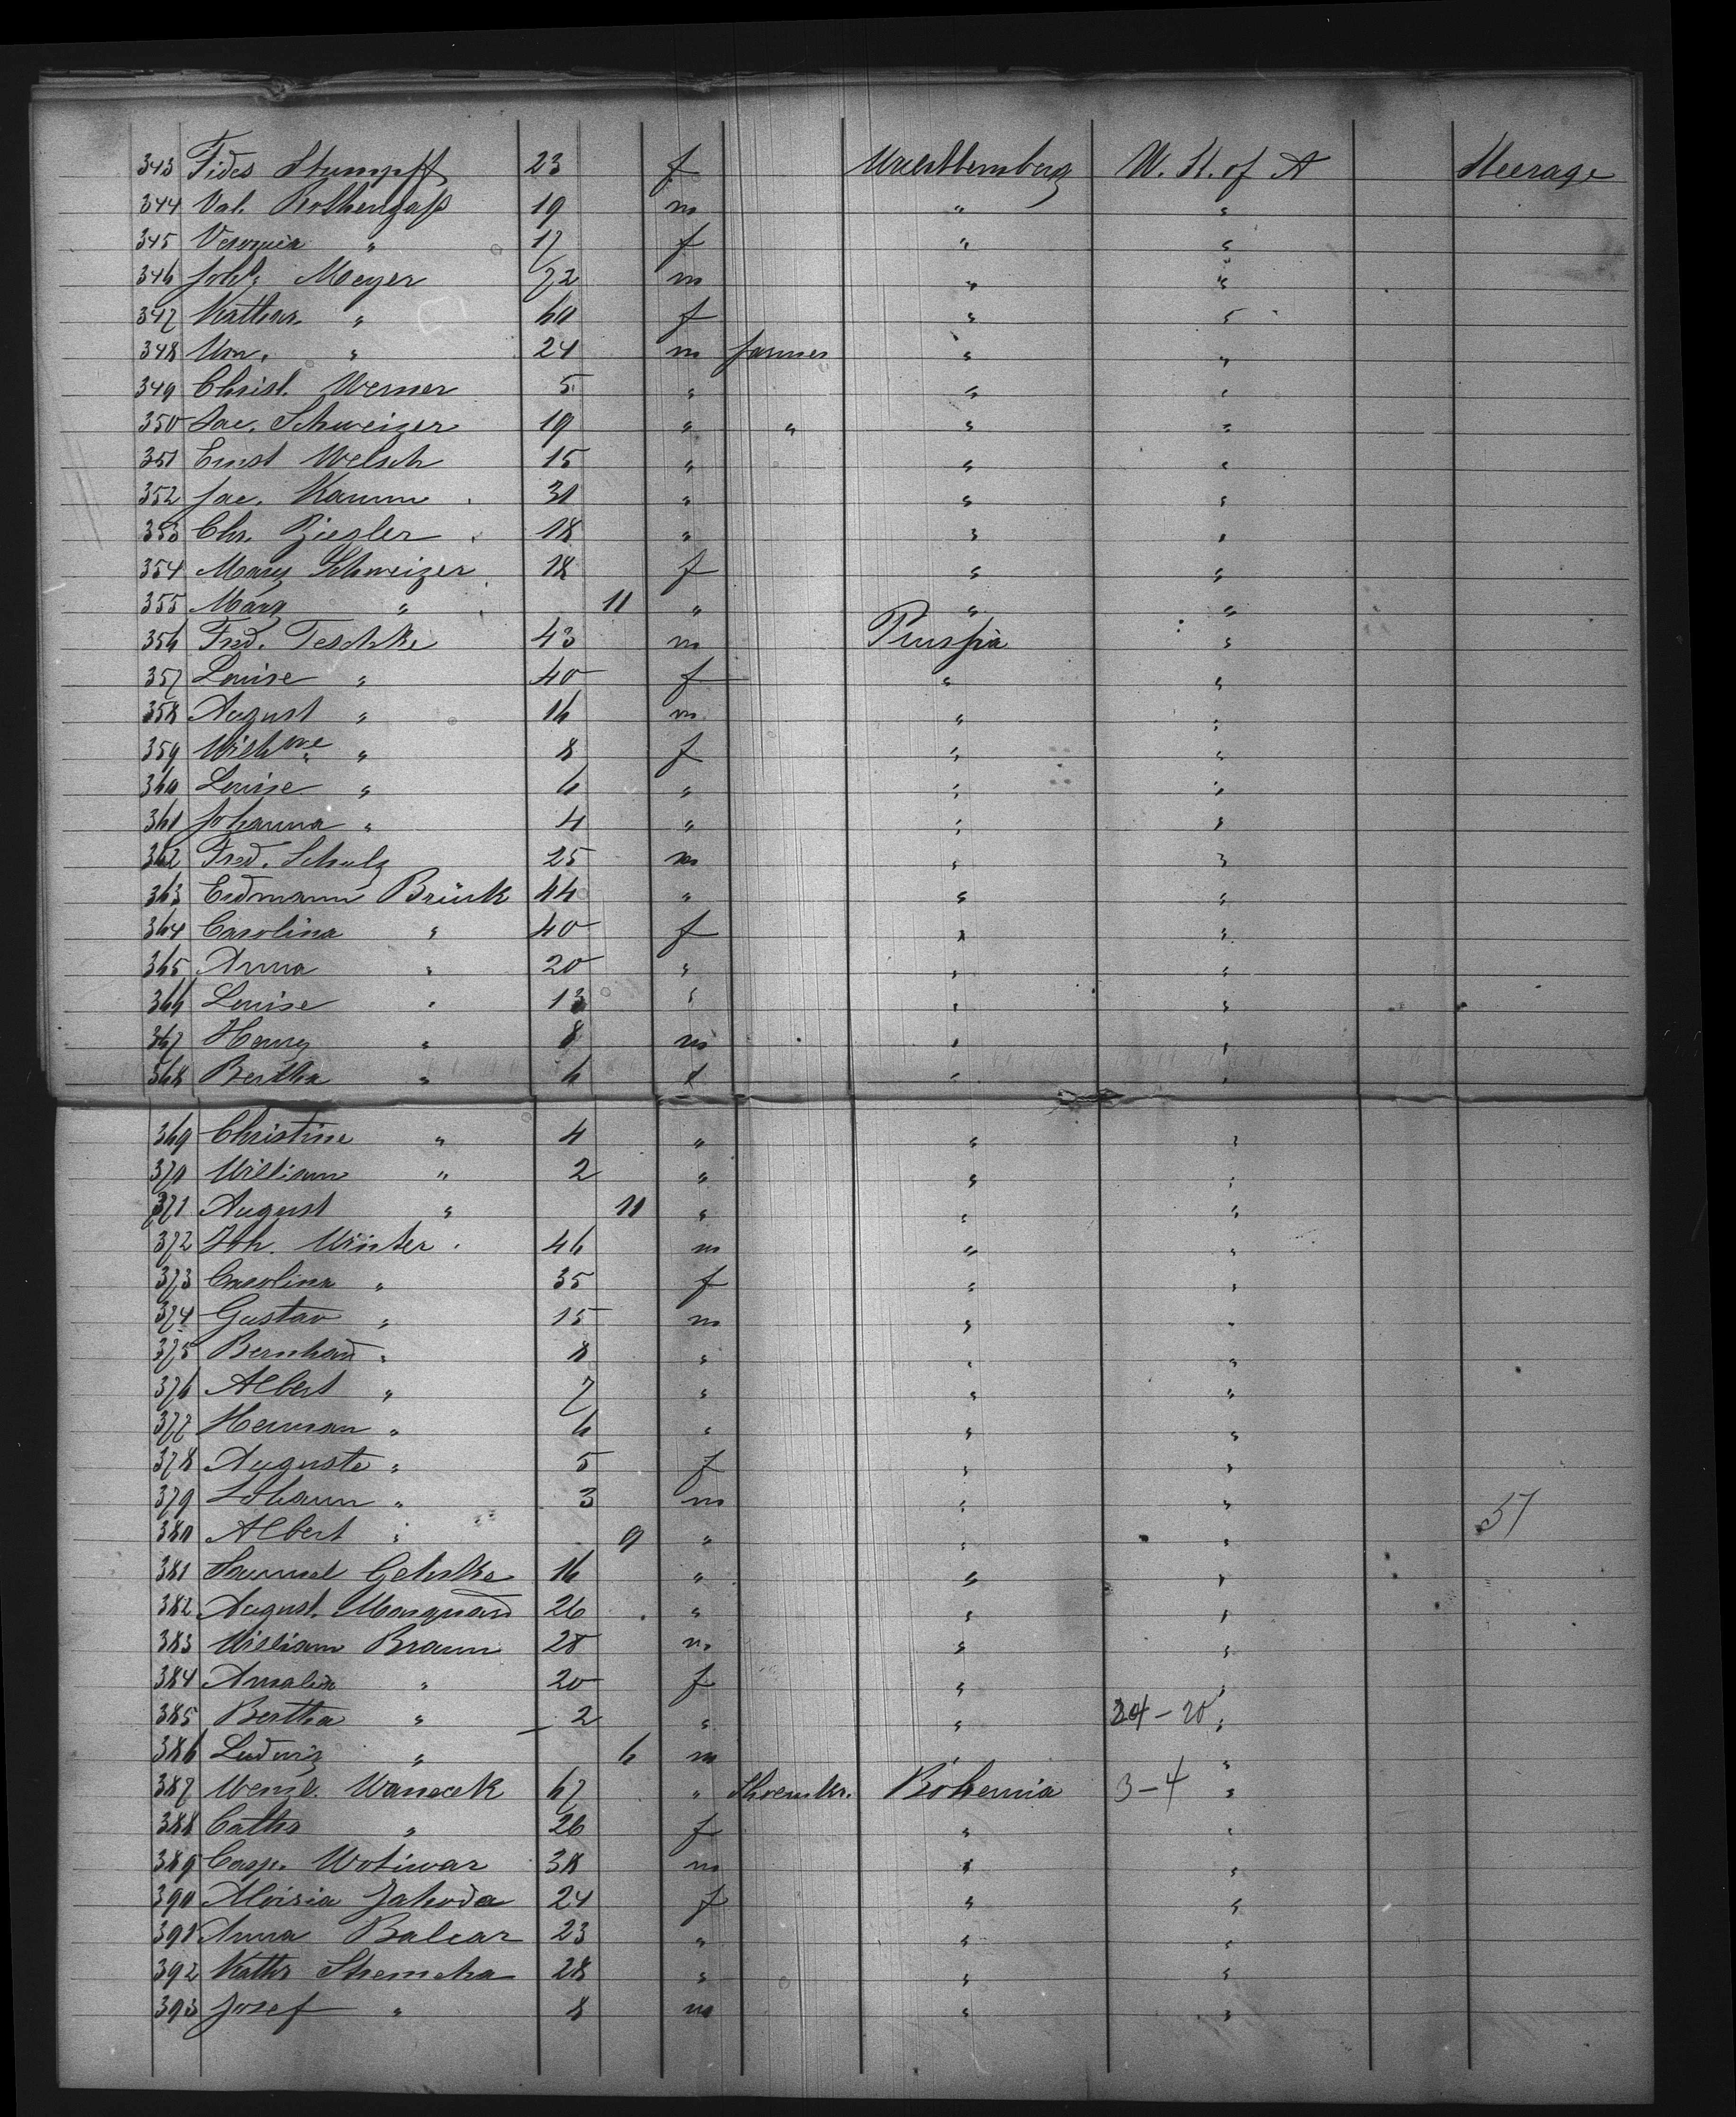 343 Fides Stumpff 23 f Wuerttemberg U. St. of A Steerage
344 Val. Rothengaß 19 m " "
345 Veronica " 17 f " "
346 Johs. Meyer 72 m " "
347 Kathar. " 60 f " "
348 Wm. " 24 m farmer " "
349 Christ. Werner 5 " " "
350 Jac. Schweizer 19 " " " "
351 Ernst Welsch 15 " " "
352 Jac. Kamm 31 " " "
353 Chr. Ziegler 18 " " "
354 Mary Schweizer 18 f " "
355 Marg " 11 " " "
356 Fred. Teschke 43 m Prussia "
357 Louise " 40 f " "
358 August " 16 m " "
359 Wilhme " 8 f " "
360 Louise " 6 " " "
361 Johanna " 4 " " "
362 Fred. Schulz 25 m " "
363 Erdmann Brück 44 " " "
364 Carolina " 40 f " "
365 Anna " 20 " " "
366 Louise " 13 " " "
367 Henry " 8 m " "
368 Bertha " 6 f " "
369 Christine " 4 " " "
370 William " 2 " " "
371 August " 11 " " "
372 Joh. Winter 46 m " "
373 Carolina " 35 f " "
374 Gustav " 15 m " "
375 Bernhard " 8 " " "
376 Albert " 7 " " "
377 Herman " 6 " " "
378 Auguste " 5 f " "
379 Johann " 3 m " " 57
380 Albert " 9 " " "
381 Samuel Gehrke 16 " " "
382 August. Marquard 26 " " "
383 William Braun 28 m " "
384 Amalia " 20 f " "
385 Bertha " 2 " " 24-20 "
386 Ludwig " 6 m " "
387 Wenzl. Wanecek 67 " Shoemkr. Bohemia 3-4 "
388 Cathr " 26 f " "
389 Casp. Wotiwar 38 m " "
390 Aloisia Jahoda 24 f " "
391 Anna Balcar 23 " " "
392 Kathr 28 " " "
393 Josef " 8 m " "